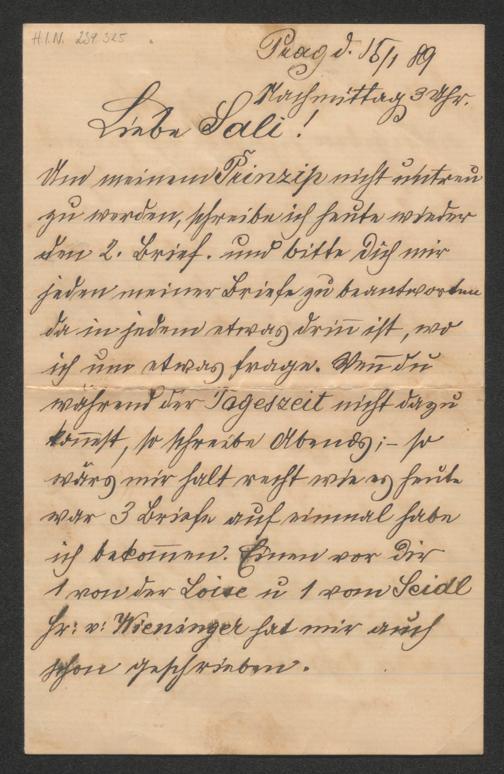 H.I.N. 239.325
Prag d. 15/1 89
Nachmittag 3 Uhr.
Liebe Sali!
Um meinem Prinzip nicht untreu
zu werden, schreibe ich heute wieder
den 2. Brief. und bitte Dich mir
jeden meiner Briefe zu beantworten
da in jedem etwas drin̄ ist, wo
ich um etwas frage. Wen̄ du
während der Tageszeit nicht dazu
kom̄st, so schreibe Abends; – so
wärs mir halt recht wie es heute
war 3 Briefe auf einmal habe
ich bekom̄en. Einen von Dir
1 von der Loise u 1 vom Seidl
Hr: v: Wieninger hat mir auch
schon geschrieben.